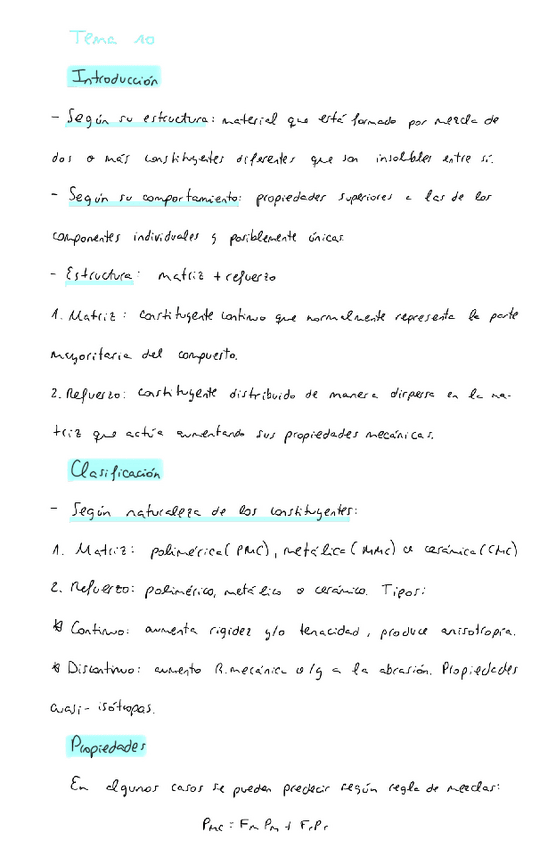 Tema 10
Introducción
- Según su estructura: material que está formado por mezcla de
dos o más constituyentes diferentes que son insolubles entre sí.
- Según su comportamiento: propiedades superiores a las de los
componentes individuales y posiblemente únicas.
- Estructura: matriz + refuerzo
1. Matriz: constituyente continuo que normalmente representa la parte
mayoritaria del compuesto.
2. Refuerzo: constituyente distribuido de manera dispersa en la ma-
triz que actúa aumentando sus propiedades mecánicas.
Clasificación
- Según naturaleza de los constituyentes:
1. Matriz: polimérica (PMC), metálica (MMC) o cerámica (CMC)
2. Refuerzo: polimérico, metálico o cerámico. Tipos:
* Continuo: aumenta rigidez y/o tenacidad, produce anisotropía.
* Discontinuo: aumento R. mecánica o/y a la abrasión. Propiedades
cuasi-isótropas.
Propiedades
En algunos casos se pueden predecir según regla de mezclas:
Pmc = Fm Pm + Fr Pr